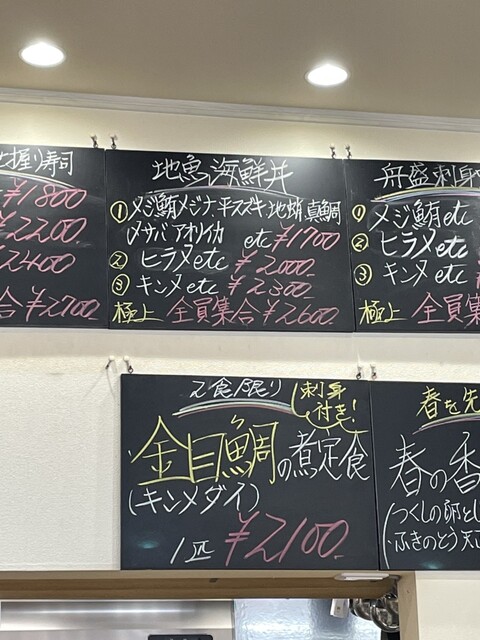 握り寿司
¥1800
¥2200
¥2400
合¥2700
地魚海鮮丼
① メジ鮪 メジナ 平スズキ 地蛸 真鯛
〆サバ アオリイカ etc ¥1700
② ヒラメetc ¥2000
③ キンメetc ¥2300
極上 全員集合 ¥2600
舟盛刺身
① メジ鮪etc
② ヒラメetc
③ キンメetc
極上 全員集
乙食限り
刺身付き!
金目鯛の煮定食
(キンメダイ)
1匹 ¥2100
春を先
春の香
(つくしの卵とじ
・ふきのとう天